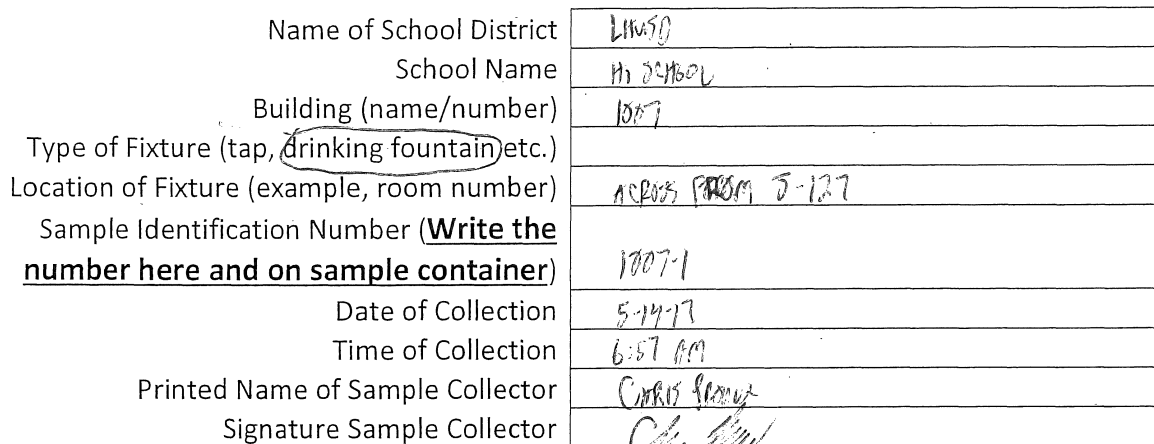 Name of School District LHUSD
School Name Hi SCHOOL
Building (name/number) 1007
Type of Fixture (tap, drinking fountain etc.)
Location of Fixture (example, room number) ACROSS FROM J-127
Sample Identification Number (Write the
number here and on sample container) 1007-1
Date of Collection 5-14-17
Time of Collection 6:57 AM
Printed Name of Sample Collector CHRIS
Signature Sample Collector